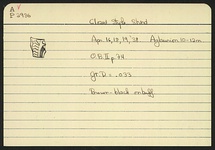 A
P 2936
Closed Style Sherd
Apr. 16, 18, 19, '38. Asklepieion 10-12 m
O.B. II p. 74
Gr. D. = .033
Brown-black on buff.